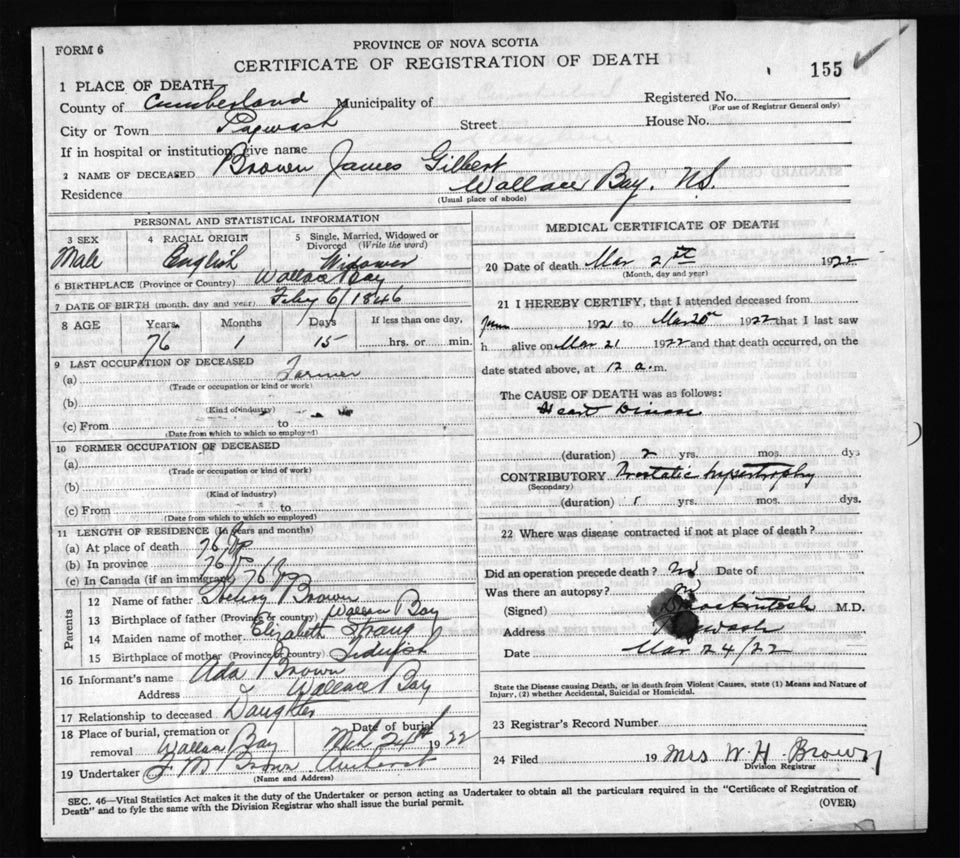 FORM 6
PROVINCE OF NOVA SCOTIA
CERTIFICATE OF REGISTRATION OF DEATH
155
1 PLACE OF DEATH
County of Cumberland Municipality of
Registered No.
(For use of Registrar General only)
City or Town Pugwash Street House No.
If in hospital or institution, give name
2 NAME OF DECEASED Brown James Gilbert
Residence Wallace Bay, N.S.
(Usual place of abode)
PERSONAL AND STATISTICAL INFORMATION
3 SEX 4 RACIAL ORIGIN 5 Single, Married, Widowed or Divorced (Write the word)
Male English Widower
6 BIRTHPLACE (Province or Country) Wallace Bay
7 DATE OF BIRTH (month, day and year) Feby 6/1846
8 AGE Years Months Days If less than one day,
76 1 15 hrs. or min.
9 LAST OCCUPATION OF DECEASED
(a) Farmer
(Trade or occupation or kind of work)
(b)
(Kind of industry)
(c) From to
(Date from which to which so employed)
10 FORMER OCCUPATION OF DECEASED
(a)
(Trade or occupation or kind of work)
(b)
(Kind of industry)
(c) From to
(Date from which to which so employed)
11 LENGTH OF RESIDENCE (In years and months)
(a) At place of death 76
(b) In province 76
(c) In Canada (if an immigrant) 76
Parents
12 Name of father Henry Brown
13 Birthplace of father (Province or country) Wallace Bay
14 Maiden name of mother Elizabeth
15 Birthplace of mother (Province or country)
16 Informant's name Ada Brown
Address Wallace Bay
17 Relationship to deceased Daughter
18 Place of burial, cremation or removal Wallace Bay
Date of burial Mch 24th 1922
19 Undertaker J M Brown Amherst
(Name and Address)
MEDICAL CERTIFICATE OF DEATH
20 Date of death Mar 21st 1922
(Month, day and year)
21 I HEREBY CERTIFY, that I attended deceased from
1921 to Mar 20th 1922 that I last saw
h alive on Mar 21 1922 and that death occurred, on the
date stated above, at 12 a.m.
The CAUSE OF DEATH was as follows:
Heart Disease
(duration) 2 yrs. mos. dys
CONTRIBUTORY Prostatic hypertrophy
(Secondary)
(duration) 1 yrs. mos. dys.
22 Where was disease contracted if not at place of death?
Did an operation precede death? No Date of
Was there an autopsy?
(Signed) Mackintosh M.D.
Address Pugwash
Date Mar 24/22
State the Disease causing Death, or in death from Violent Causes, state (1) Means and Nature of
Injury, (2) whether Accidental, Suicidal or Homicidal.
23 Registrar's Record Number
24 Filed 19 Mrs W. H. Brown
Division Registrar
SEC. 46—Vital Statistics Act makes it the duty of the Undertaker or person acting as Undertaker to obtain all the particulars required in the "Certificate of Registration of
Death" and to fyle the same with the Division Registrar who shall issue the burial permit.
(OVER)